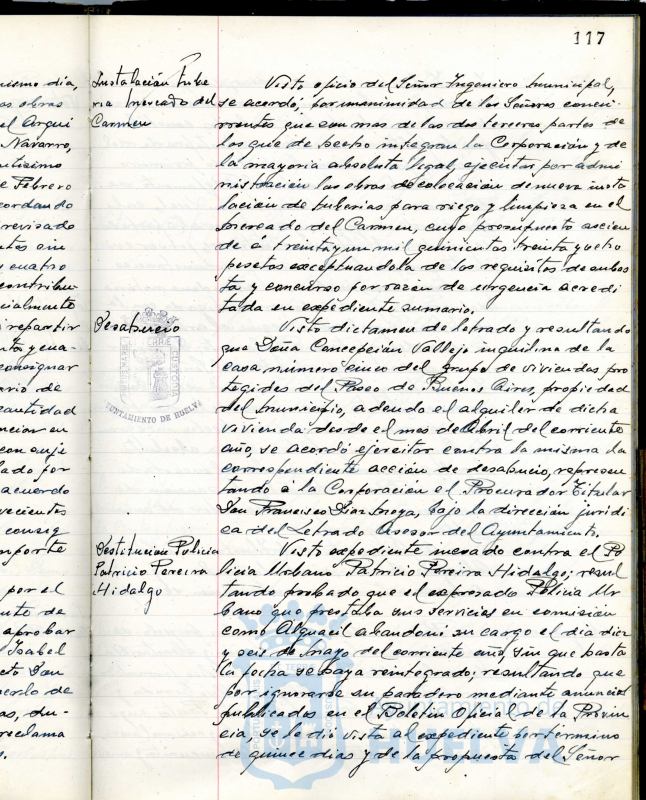 117
nismo dia,
as obras
el Arqui
Navarro,
ntisimo
e Febrero
cordando
revisado
ntos sin
y cuatro
contribu
cialmente
i repartir
ntos y cua-
consignar
ario de
cantidad
ncion en
con suje
lado por
acuerdo
vecientos
consig
mporte
por el
unto de
aprobar
Isabel
cto Don
uerlo de
as, du-
reclama
s.
Instalación Tube
ria Mercado del
Carmen
Visto oficio del Señor Ingeniero Municipal,
se acordó, por unanimidad de los Señores concu-
rrentes que son mas de las dos terceras partes de
los que de hecho integran la Corporación y de
la mayoria absoluta legal, ejecutar por admi
nistración las obras de colocación de nueva insta
lación de tuberias para riego y limpieza en el
Mercado del Carmen, cuyo presupuesto ascien
de á treinta y un mil quinientas treinta y ocho
pesetas exceptuandola de los requisitos de subas
ta y concurso por razón de urgencia acredi
tada en expediente sumario.
Desahucio
Visto dictamen de letrado y resultando
que Doña Concepción Vallejo inquilina de la
casa número cinco del grupo de viviendas pro
tegidas del Paseo de Buenos Aires, propiedad
del Municipio, adeuda el alquiler de dicha
vivienda desde el mes de Abril del corriente
año, se acordó ejercitar contra la misma la
correspondiente acción de desahucio, represen
tando á la Corporación el Procurador Titular
Don Francisco Diaz, bajo la dirección juridi
ca del Letrado Asesor del Ayuntamiento.
AYUNTAMIENTO DE HUELVA
Destitución Policia
Patricio Pereira
Hidalgo
Visto expediente incoado contra el Po
licia Urbano Patricio Pereira Hidalgo; resul
tando probado que el expresado Policia Ur
bano que prestaba sus servicios en comisión
como Alguacil abandonó su cargo el dia diez
y seis de Mayo del corriente año, sin que hasta
la fecha se haya reintegrado; resultando que
por ignorarse su paradero mediante anuncios
publicados en el Boletin Oficial de la Provin
cia, se le dió vista al expediente por termino
de quince dias y de la propuesta del Señor
Ayuntamiento de
HUELVA